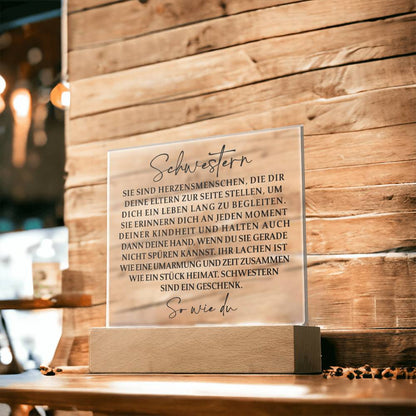 Schwestern
SIE SIND HERZENSMENSCHEN, DIE DIR
DEINE ELTERN ZUR SEITE STELLEN, UM
DICH EIN LEBEN LANG ZU BEGLEITEN.
SIE ERINNERN DICH AN JEDEN MOMENT
DEINER KINDHEIT UND HALTEN AUCH
DANN DEINE HAND, WENN DU SIE GERADE
NICHT SPÜREN KANNST. IHR LACHEN IST
WIE EINE UMARMUNG UND ZEIT ZUSAMMEN
WIE EIN STÜCK HEIMAT. SCHWESTERN
SIND EIN GESCHENK.
So wie du